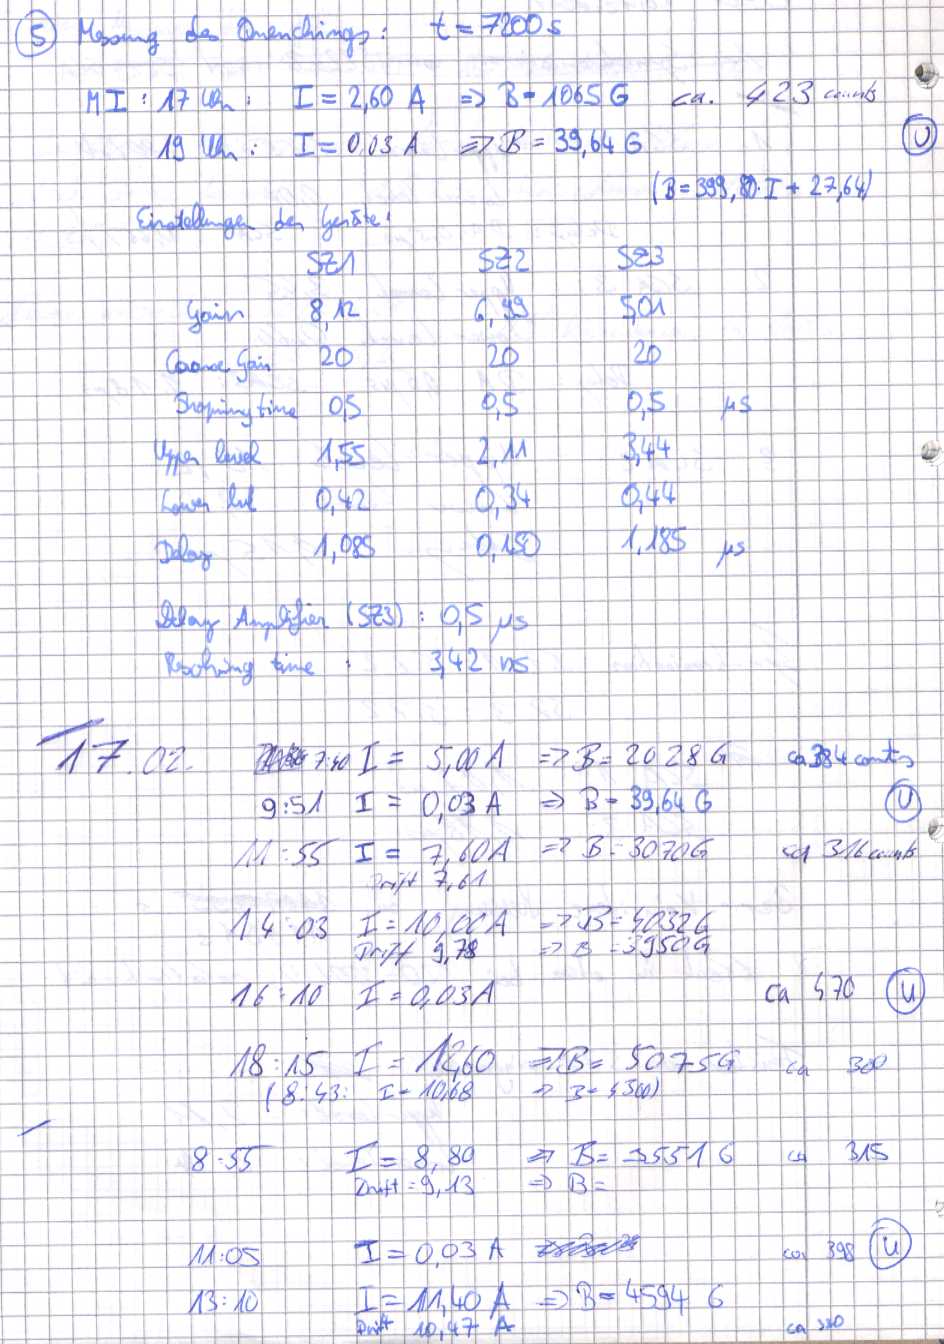 (5) Messung des Quenchings: t = 7200 s
MI: 17 Uhr: I = 2,60 A => B = 1065 G ca. 423 counts
19 Uhr: I = 0,03 A => B = 39,64 G (U)
(B = 399,80 · I + 27,64)
Einstellungen der Geräte:
SZ1 SZ2 SZ3
Gain 8,12 6,99 5,01
Coarse Gain 20 20 20
Shaping time 0,5 0,5 0,5 µs
Upper level 1,55 2,11 3,44
Lower lvl 0,42 0,34 0,44
Delay 1,085 0,150 1,185 µs
Delay Amplifier (SZ3): 0,5 µs
Resolving time : 3,42 ns
17.02. 7:40 I = 5,00 A => B = 2028 G ca 384 counts
9:51 I = 0,03 A => B = 39,64 G (U)
11:55 I = 7,60 A => B = 3070 G ca 316 counts
Drift 7,61
14:03 I = 10,00 A => B = 4032 G
Drift 9,78 => B = 3950 G
16:10 I = 0,03 A ca 470 (U)
18:15 I = 12,60 => B = 5075 G ca 300
(8:43: I = 10,68 => B = 4300)
8:55 I = 8,80 => B = 3551 G ca 315
Drift = 9,13 => B =
11:05 I = 0,03 A ca 398 (U)
13:10 I = 11,40 A => B = 4594 G
Drift 10,47 A ca